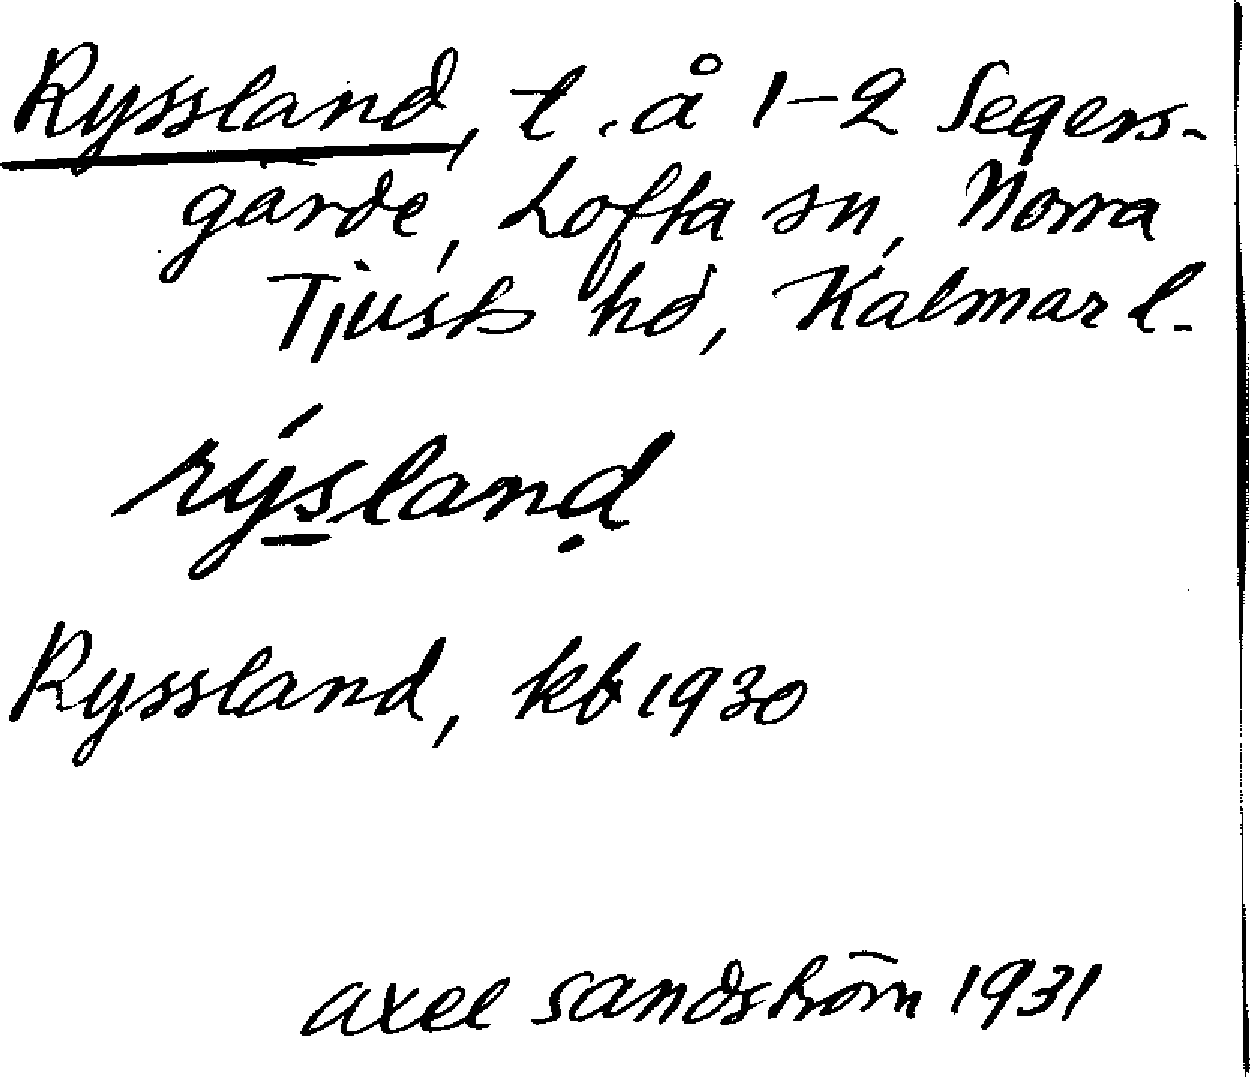 Ryssland, t. å 1-2 Segers-
gärde, Lofta sn, Norra
Tjusts hd, Kalmar l.
rýs̲lanḍ
Ryssland, kb 1930
Axel Sandström 1931